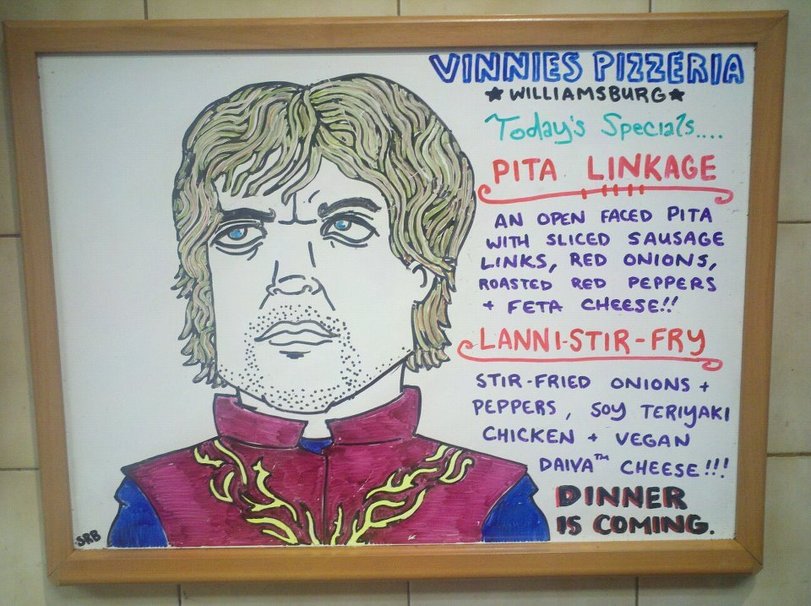 VINNIES PIZZERIA
★WILLIAMSBURG★
Today's Specials....
PITA LINKAGE
AN OPEN FACED PITA
WITH SLICED SAUSAGE
LINKS, RED ONIONS,
ROASTED RED PEPPERS
+ FETA CHEESE!!
LANNI-STIR-FRY
STIR-FRIED ONIONS +
PEPPERS, SOY TERIYAKI
CHICKEN + VEGAN
DAIYA™ CHEESE!!!
DINNER
IS COMING.
SRB